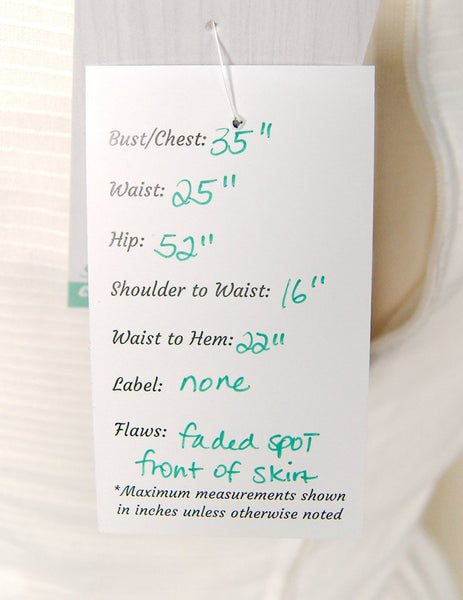 Bust/Chest: 35"
Waist: 25"
Hip: 52"
Shoulder to Waist: 16"
Waist to Hem: 22"
Label: none
Flaws: faded spot
front of skirt
*Maximum measurements shown
in inches unless otherwise noted